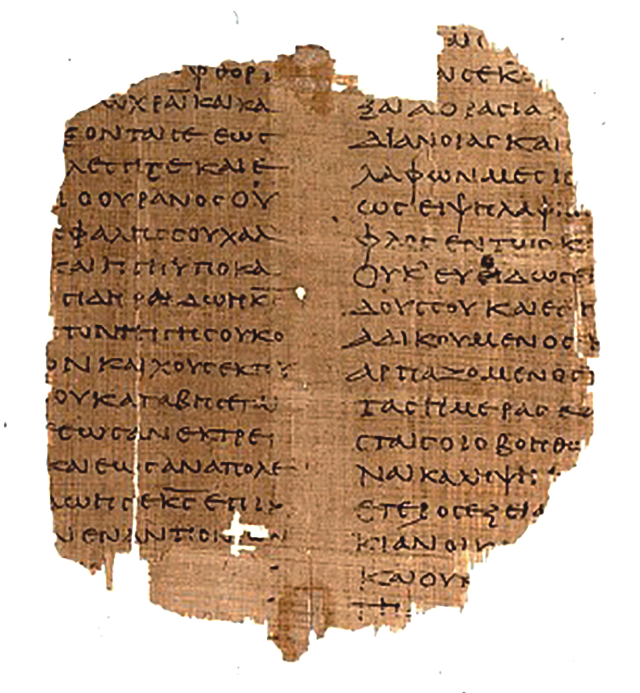 φθορι
ωχραι και κα
ξονται σε εως
λεση σε και ε
ι ο ουρανος ο υ
εφαλης σου χαλ
και η γη η υποκα
σιδηρα δωη κ̅ς̅
τον τη γη σου κο
ον και χους εκ του
ου καταβησεται
εως αν εκτρει
και εως αν απολε
δωη σε κ̅ς̅ επικ
ν εναντιον
αι σε κ
ξαι αορασια
διανοιας και
λαφων μεση
ως ει ψηλαφη
φλος εν τω σκ
ουκ ευοδωσε
δους σου και εσ
αδικουμενος
αρπαζομενος
τας ημερας κα
σται σοι ο βοηθω
ναικα λημψη
ετερος εξει
κιαν οικ
και ουκ
τη